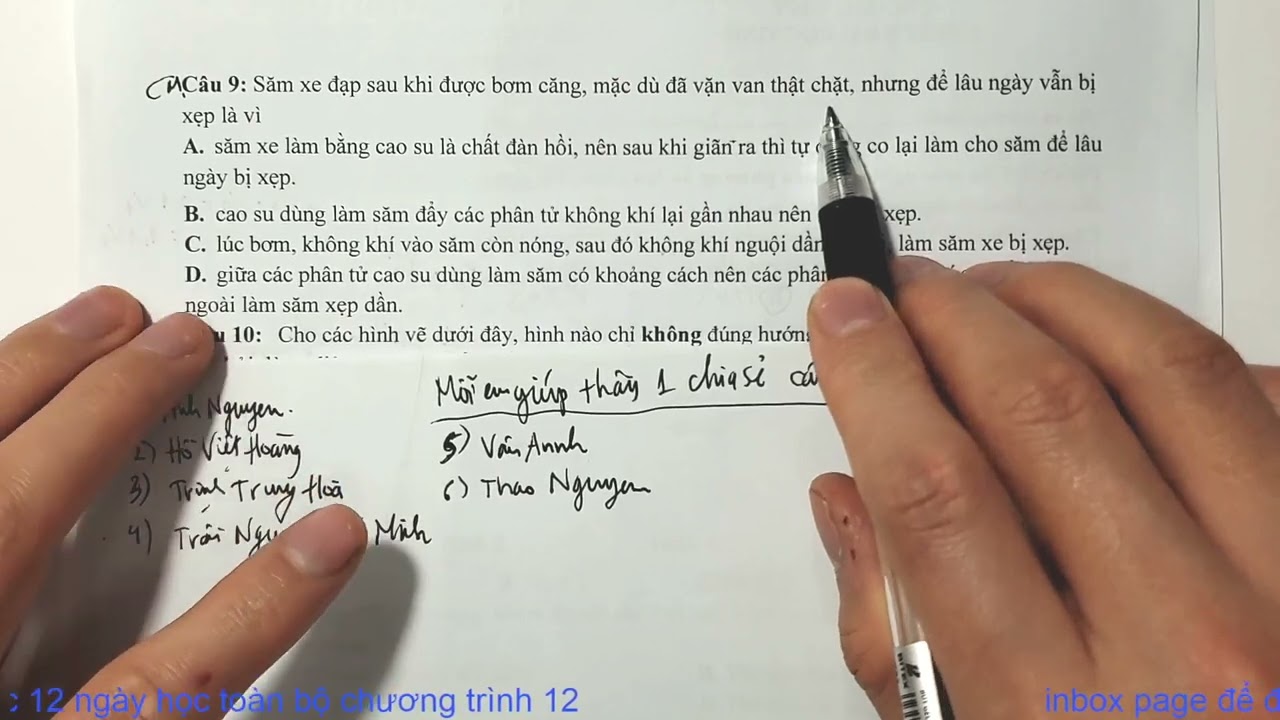 Câu 9: Săm xe đạp sau khi được bơm căng, mặc dù đã vặn van thật chặt, nhưng để lâu ngày vẫn bị
xẹp là vì
A. săm xe làm bằng cao su là chất đàn hồi, nên sau khi giãn ra thì tự co lại làm cho săm để lâu
ngày bị xẹp.
B. cao su dùng làm săm đẩy các phân tử không khí lại gần nhau nên xẹp.
C. lúc bơm, không khí vào săm còn nóng, sau đó không khí nguội dần làm săm xe bị xẹp.
D. giữa các phân tử cao su dùng làm săm có khoảng cách nên các phân
ngoài làm săm xẹp dần.
10: Cho các hình vẽ dưới đây, hình nào chỉ không đúng hướng
Mỗi em giúp thầy 1 chia sẻ
Nguyen.
2) Hồ Việt Hoàng
3) Trịnh Trung Hoà
4) Trần Minh
5) Vân Annh
6) Thao Nguyen
12 ngày học toàn bộ chương trình 12
inbox page để